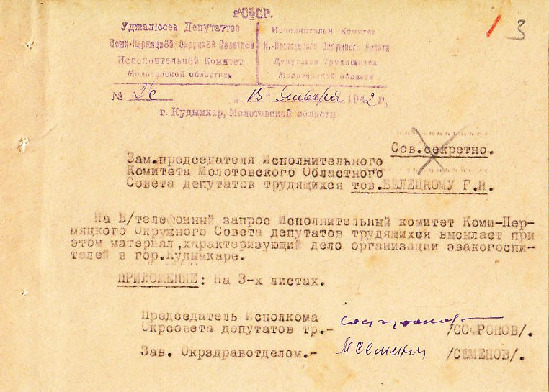 РСФСР.
Уджалiссез Депутаттэз
Исполнительнöй Комитет
Молотовскöй область
Исполнительный Комитет
К.-Пермяцкого Окружного Совета
Депутатов Трудящихся
Молотовской области
№ 2с „15" января 1942 г.
г. Кудымкар, Молотовской области
3
Сов.секретно.
Зам.председателя Исполнительного
Комитета Молотовского Областного
Совета депутатов трудящихся тов.БЕЛЕЦКОМУ Г.И.
На В/телефонный запрос Исполнительный комитет Коми-Пер-
мяцкого Окружного Совета депутатов трудящихся высылает при
этом материал,характеризующий дело организации эвакогоспи-
талей в гор.Кудымкаре.
ПРИЛОЖЕНИЕ: на 3-х листах.
Председатель Исполкома
Окрсовета депутатов тр.- /СОФРОНОВ/.
Зав. Окрздравотделом.- /СЕМЕНОВ/.